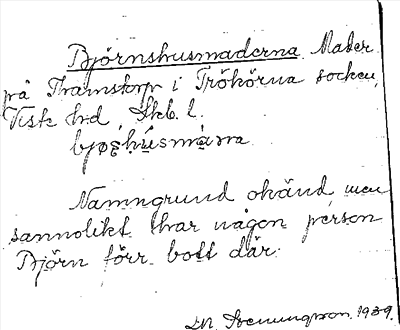 Björnshusmaderna. Mader
på Thamstorp i Trökörna socken,
Viste hd, Skb. l.
bjøṣhúsmàṛa
Namngrund okänd, men
sannolikt har någon person
Björn förr bott där.
1939.